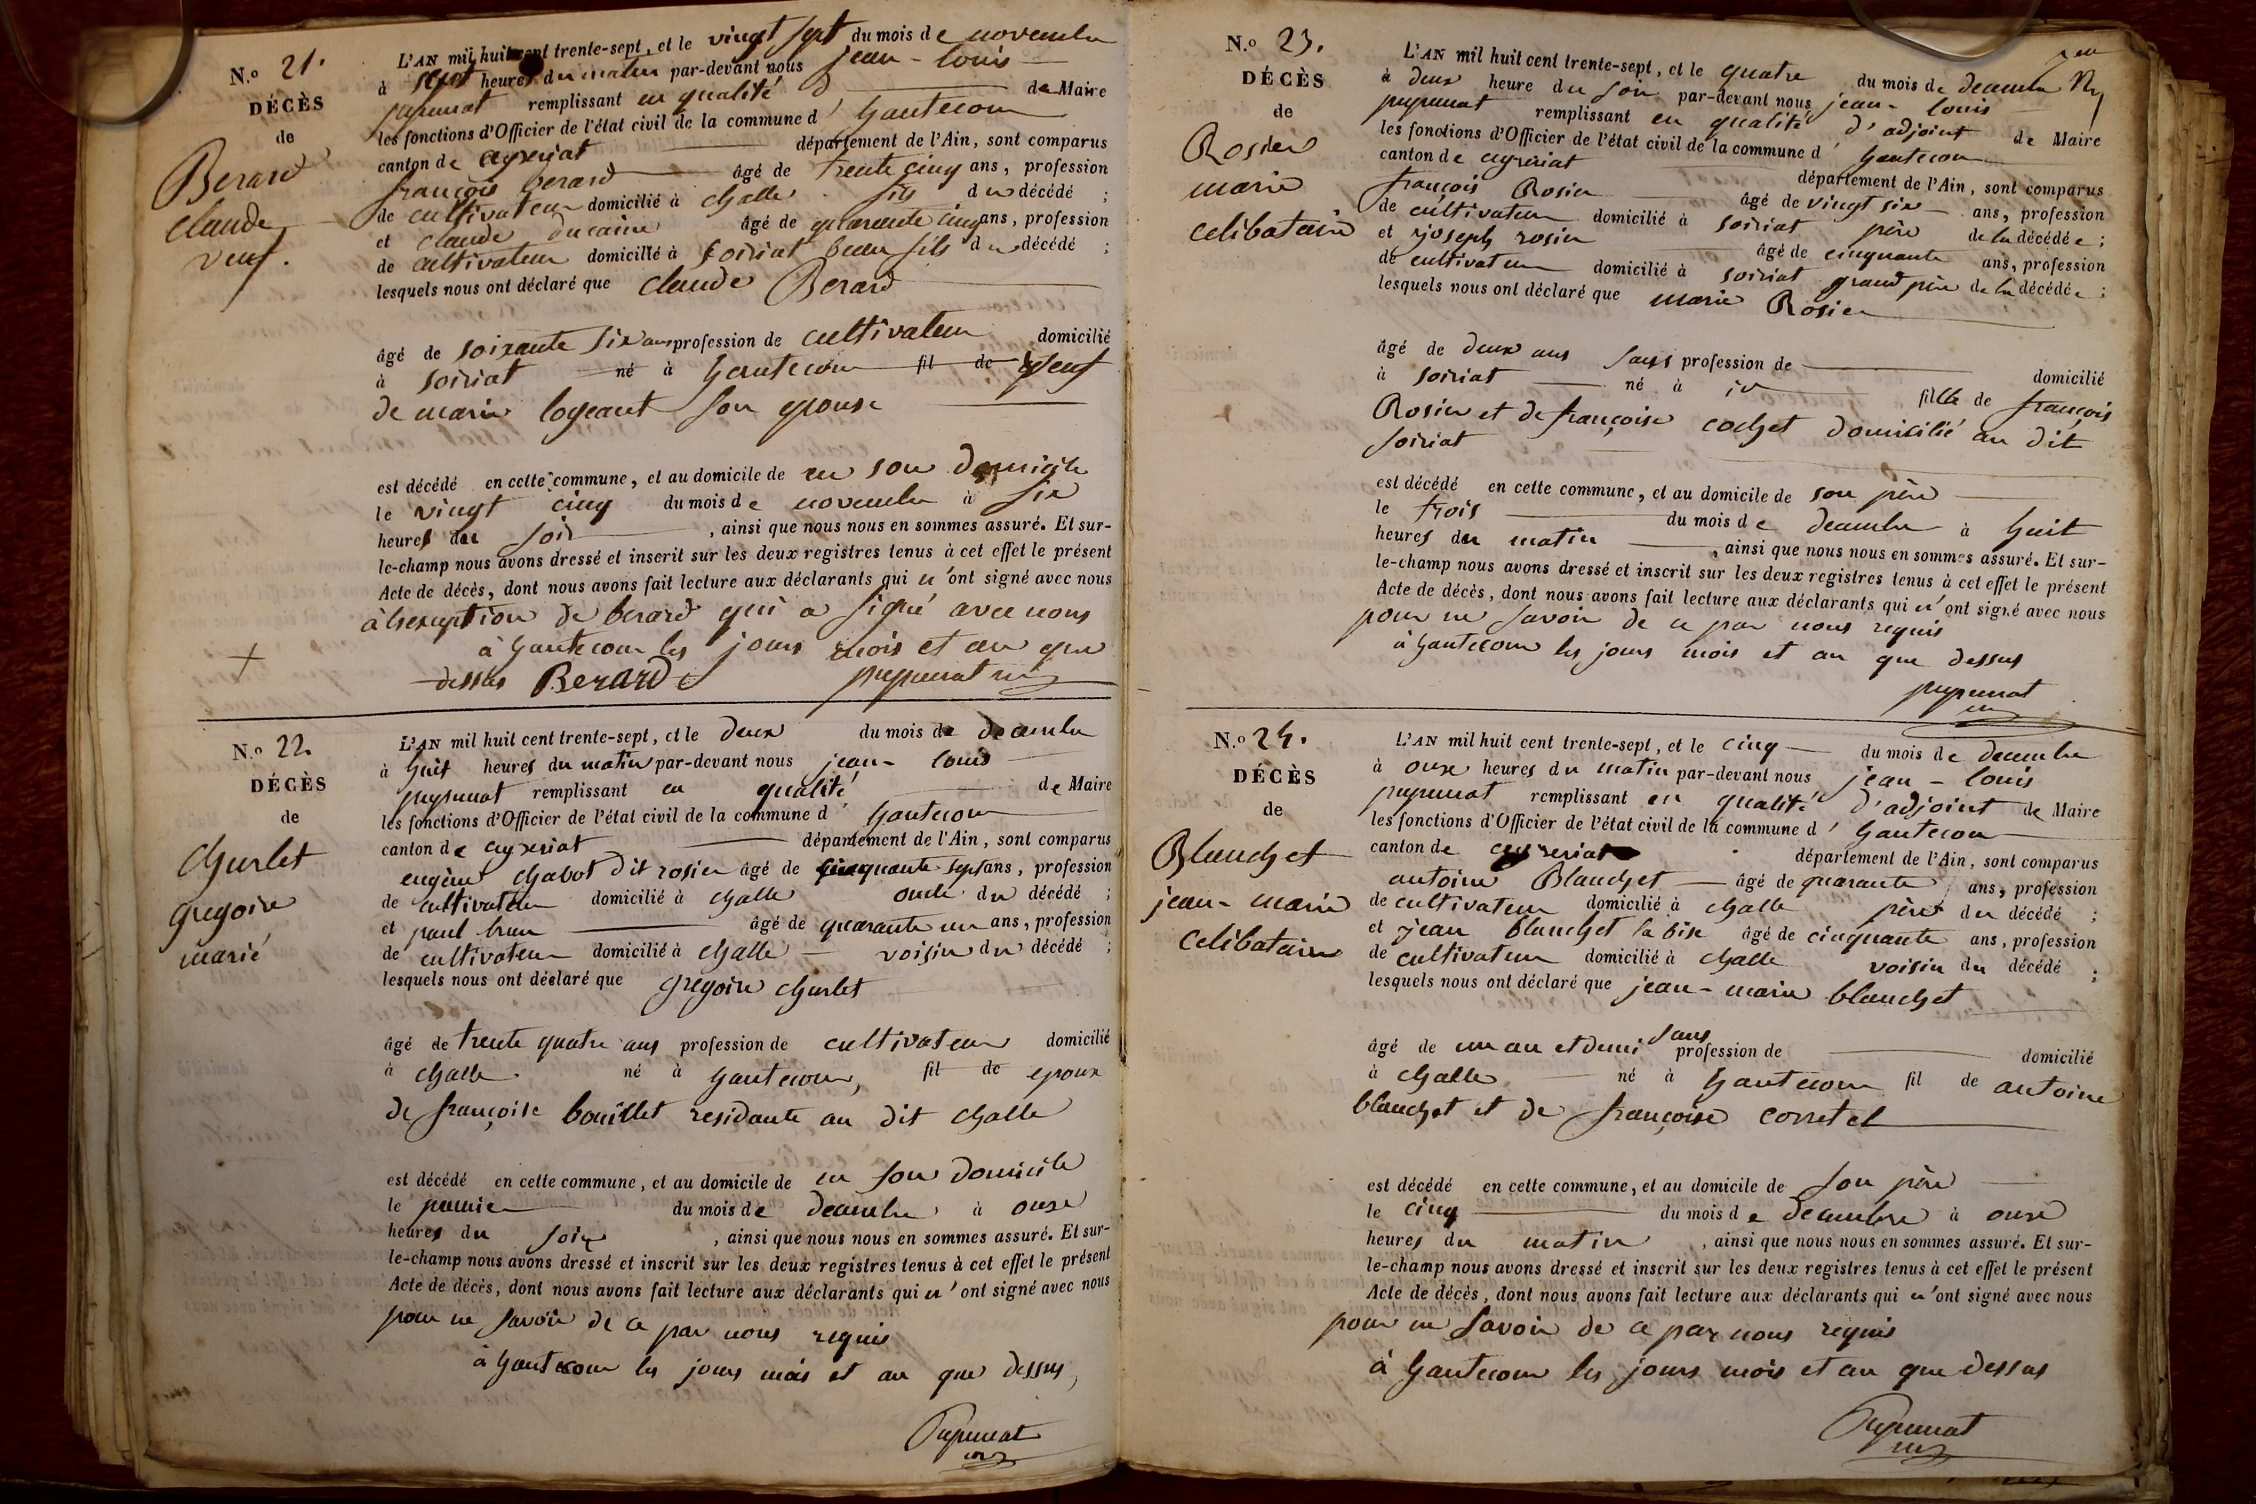 N.º 21.
DÉCÈS
de
Berard
claude
veuf.
L'AN mil huit cent trente-sept, et le vingt sept du mois de novembre
à sept heures du matin par-devant nous jean-louis
pupunat remplissant en qualité d de Maire
les fonctions d'Officier de l'état civil de la commune d'hautecour
canton de ceyzeriat département de l'Ain, sont comparus
françois berard âgé de trente cinq ans, profession
de cultivateur domicilié à challe fils du décédé ;
et claude ducaine âgé de quarante cinq ans, profession
de cultivateur domicilié à soiriat beau fils du décédé ;
lesquels nous ont déclaré que claude Berard
âgé de soixante six ans profession de cultivateur domicilié
à soiriat né à hautecour fil de veuf
de marie logeant son epouse
est décédé en cette commune, et au domicile de en son domicile
le vingt cinq du mois de novembre à six
heures du soir, ainsi que nous nous en sommes assuré. Et sur-
le-champ nous avons dressé et inscrit sur les deux registres tenus à cet effet le présent
Acte de décès, dont nous avons fait lecture aux déclarants qui n'ont signé avec nous
à lexeception de berard qui a signé avec nous
à hautecour les jours mois et an que
dessus Berard pupunat
N.º 22.
DÉCÈS
de
churlet
gregoire
marié
L'AN mil huit cent trente-sept, et le deux du mois de decembre
à huit heures du matin par-devant nous jean-louis
pupunat remplissant en qualité de Maire
les fonctions d'Officier de l'état civil de la commune d'hautecour
canton de ceyzeriat département de l'Ain, sont comparus
eugène chabot dit rosier âgé de cinquante sept ans, profession
de cultivateur domicilié à challe oncle du décédé ;
et paul brun âgé de quarante un ans, profession
de cultivateur domicilié à challe voisin du décédé ;
lesquels nous ont déclaré que gregoire churlet
âgé de trente quatre ans profession de cultivateur domicilié
à challe né à hautecour, fil de epoux
de françoise bouillet residante au dit challe
est décédé en cette commune, et au domicile de en son domicile
le premier du mois de decembre à onze
heures du soir, ainsi que nous nous en sommes assuré. Et sur-
le-champ nous avons dressé et inscrit sur les deux registres tenus à cet effet le présent
Acte de décès, dont nous avons fait lecture aux déclarants qui n'ont signé avec nous
pour ne savoir de ce par nous requis
à hautecour les jours mois et an que dessus,
Pupunat
N.º 23.
DÉCÈS
de
Rosier
marie
celibataire
L'AN mil huit cent trente-sept, et le quatre du mois de decembre
à deux heure du soir par-devant nous jean-louis
pupunat remplissant en qualité d'adjoint de Maire
les fonctions d'Officier de l'état civil de la commune d'hautecour
canton de ceyzeriat département de l'Ain, sont comparus
françois Rosier âgé de vingt six ans, profession
de cultivateur domicilié à soiriat père de la décédée ;
et joseph rosier âgé de cinquante ans, profession
de cultivateur domicilié à soiriat grand père de la décédée ;
lesquels nous ont déclaré que marie Rosier
âgé de deux ans sans profession de domicilié
à soiriat né à ii fille de françois
Rosier et de françoise cochet domicilié au dit
soiriat
est décédé en cette commune, et au domicile de son père
le trois du mois de decembre à huit
heures du matin, ainsi que nous nous en sommes assuré. Et sur-
le-champ nous avons dressé et inscrit sur les deux registres tenus à cet effet le présent
Acte de décès, dont nous avons fait lecture aux déclarants qui n'ont signé avec nous
pour ne savoir de ce par nous requis
à hautecour les jours mois et an que dessus
pupunat
N.º 24.
DÉCÈS
de
Blanchet
jean-marie
celibataire
L'AN mil huit cent trente-sept, et le cinq du mois de decembre
à onze heures du matin par-devant nous jean-louis
pupunat remplissant en qualité d'adjoint de Maire
les fonctions d'Officier de l'état civil de la commune d'hautecour
canton de ceyzeriat département de l'Ain, sont comparus
antoine Blanchet âgé de quarante ans, profession
de cultivateur domicilié à challe père du décédé ;
et jean blanchet la bise âgé de cinquante ans, profession
de cultivateur domicilié à challe voisin du décédé ;
lesquels nous ont déclaré que jean-marie blanchet
âgé de un an et demi sans profession de domicilié
à challe né à hautecour fil de antoine
blanchet et de françoise corretel
est décédé en cette commune, et au domicile de son père
le cinq du mois de decembre à onze
heures du matin, ainsi que nous nous en sommes assuré. Et sur-
le-champ nous avons dressé et inscrit sur les deux registres tenus à cet effet le présent
Acte de décès, dont nous avons fait lecture aux déclarants qui n'ont signé avec nous
pour ne savoir de ce par nous requis
à hautecour les jours mois et an que dessus
Pupunat